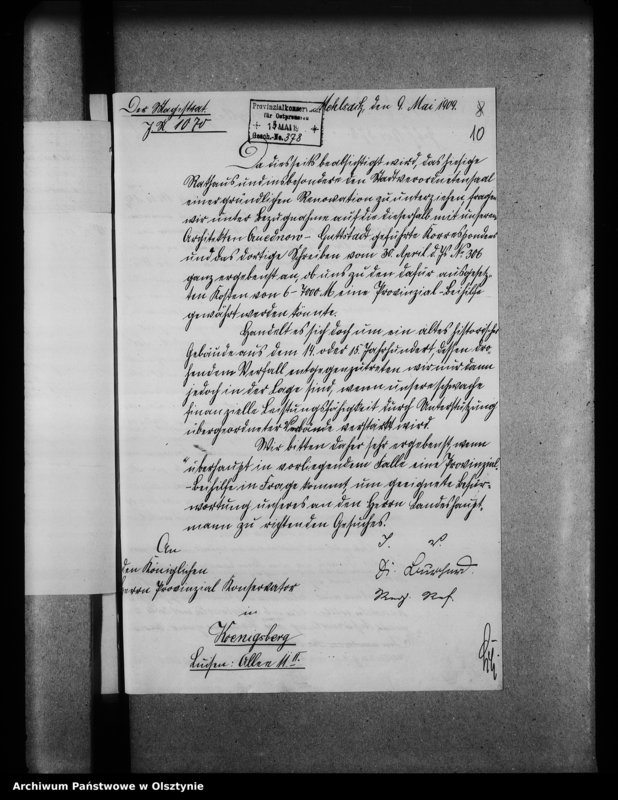 Der Magistrat
J. N. 1075
Provinzialkonservator
für Ostpreussen
+ 15 MAI 19 +
Gesch.-No. 378
Mehlsack, den 9. Mai 1909.
10
Da diesseits beabsichtigt wird, das hiesige
Rathaus und insbesondere den Stadtverordnetensaal
einer gründlichen Renovation zu unterziehen, fragen
wir unter Bezugnahme auf die dieserhalb mit unserem
Architekten - Guttstadt geführte Korrespondenz
und das dortige Schreiben vom 30. April d. Js. No 306
ganz ergebenst an, ob uns zu den dafür ausgesetz-
ten Kosten von 6-7000 M eine Provinzial-Beihilfe
gewährt werden könnte.
Handelt es sich doch um ein altes historisches
Gebäude aus dem 14. oder 15. Jahrhundert, dessen dro-
hendem Verfall entgegenzutreten wir nur dann
jedoch in der Lage sind, wenn unsere schwache
finanzielle Leistungsfähigkeit durch Unterstützung
übergeordneter Verbände verstärkt wird.
Wir bitten daher sehr ergebenst, wenn
überhaupt in vorliegendem Falle eine Provinzial-
Beihilfe in Frage kommt, um geeignete Befür-
wortung unseres an den Herrn Landeshaupt-
mann zu richtenden Gesuches.
An
den Königlichen
Herrn Provinzial Konservator
in
Koenigsberg
Luisen: Allee 11 II.
J. V.
Reg. Ref.
Archiwum Państwowe w Olsztynie